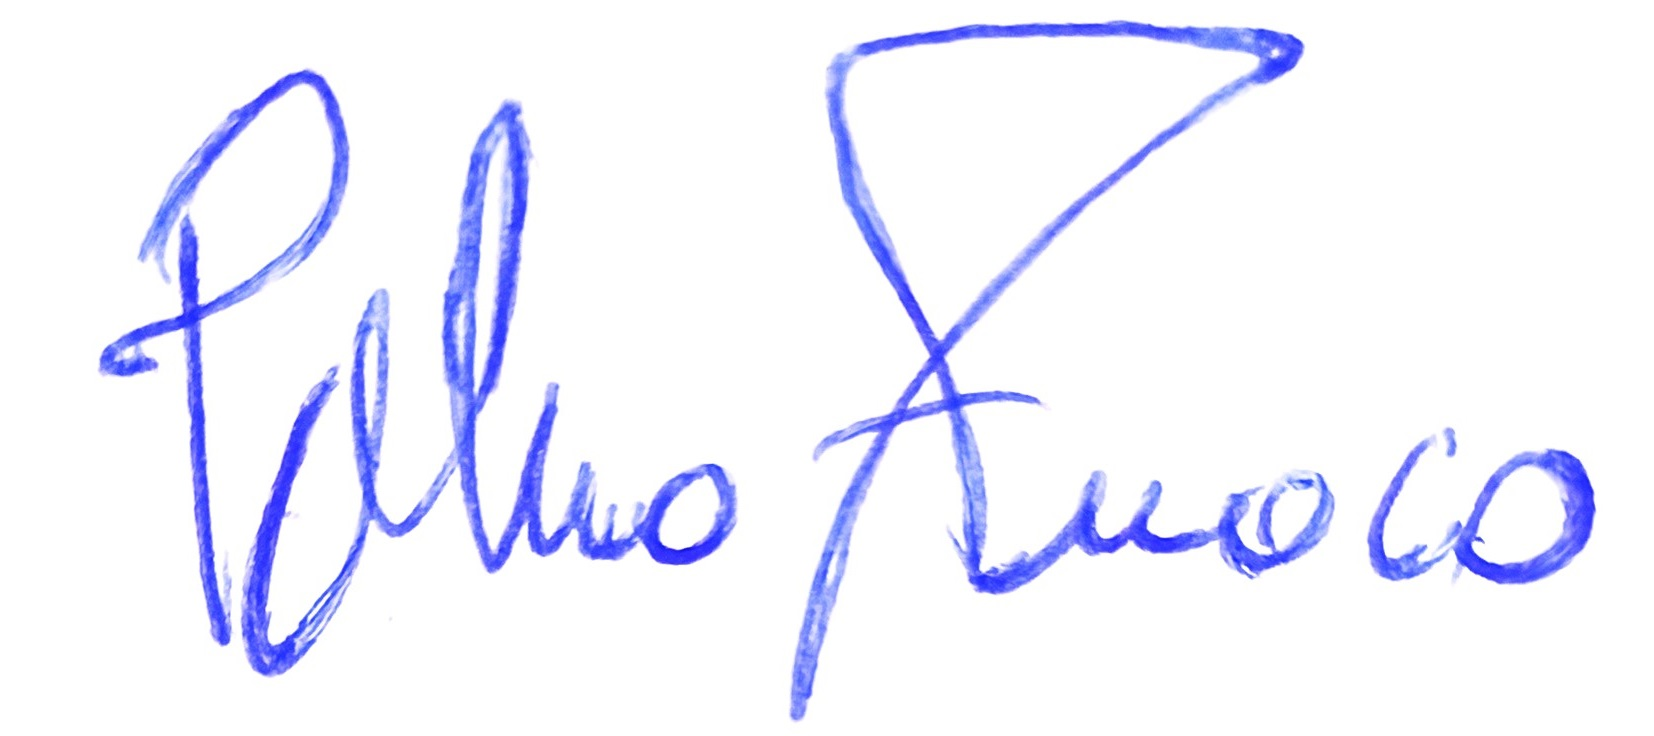 Palmo Fuoco